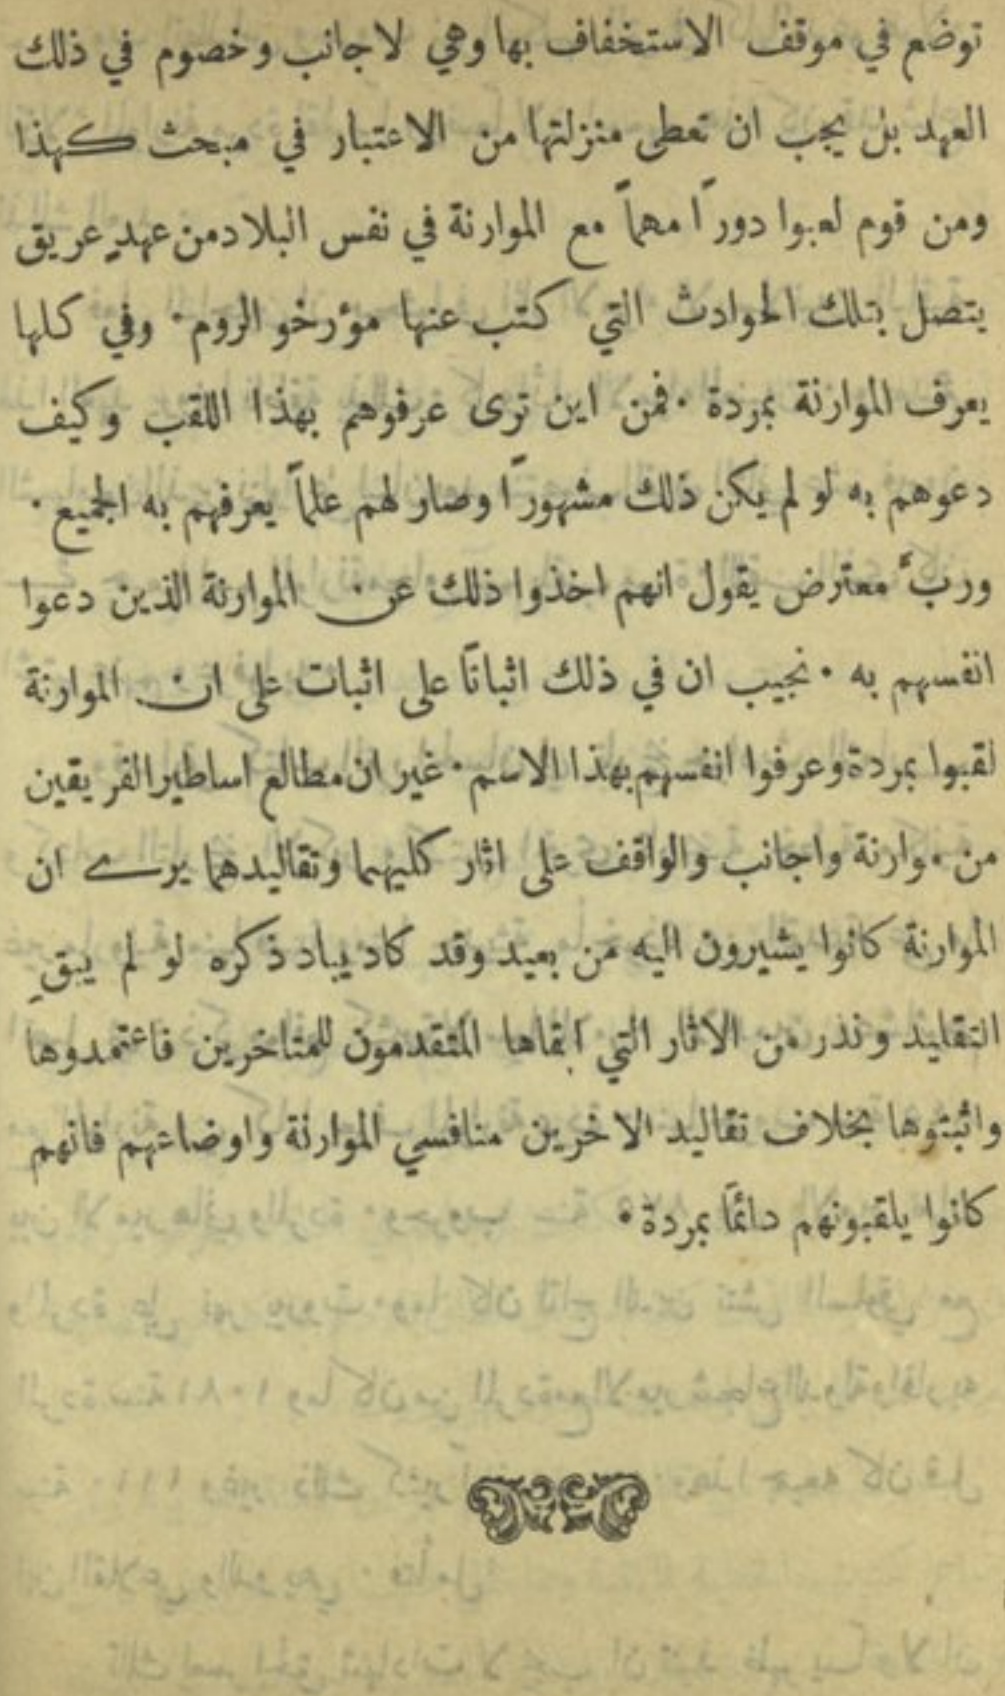 توضع في موقف الاستخفاف بها وهي لاجانب وخصوم في ذلك
العهد بل يجب ان تعطى منزلتها من الاعتبار في مبحث كهذا
ومن قوم لعبوا دوراً مهماً مع الموارنة في نفس البلاد من عهدٍ عريق
يتصل بتلك الحوادث التي كتب عنها مؤرخو الروم · وفي كلها
يعرف الموارنة بمردة · فمن اين ترى عرفوهم بهذا اللقب وكيف
دعوهم به لو لم يكن ذلك مشهوراً وصار لهم علماً يعرفهم به الجميع ·
وربَّ معترض يقول انهم اخذوا ذلك عن الموارنة الذين دعوا
انفسهم به · نجيب ان في ذلك اثباتاً على اثبات على ان الموارنة
لقبوا بمردة وعرفوا انفسهم بهذا الاسم · غير ان مطالع اساطير الفريقين
من موارنة واجانب والواقف على اثار كليهما وتقاليدهما يرے ان
الموارنة كانوا يشيرون اليه من بعيد وقد كاد يباد ذكره لو لم يبقِ
التقليد ونذر من الاثار التي ابقاها المتقدمون للمتاخرين فاعتمدوها
واثبتوها بخلاف تقاليد الاخرين منافسي الموارنة واوضاعهم فانهم
كانوا يلقبونهم دائماً بمردة ·